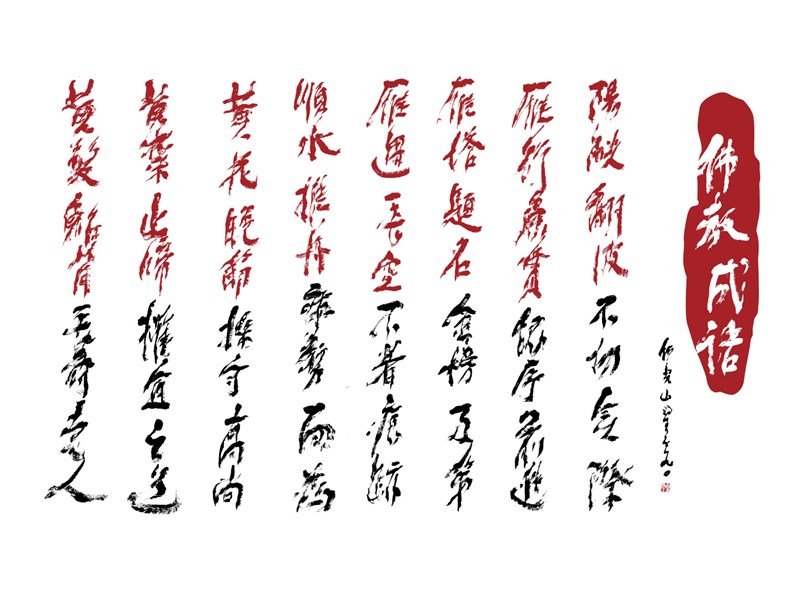 佛教成語
佛光山星雲
陽燄翻波不切實際
雁行魚貫依序前進
雁塔題名金榜及第
雁過長空不着痕跡
順水推舟乘勢而為
黃花晚節操守高尚
黃葉止啼權宜之道
黃髮鮐背長壽老人